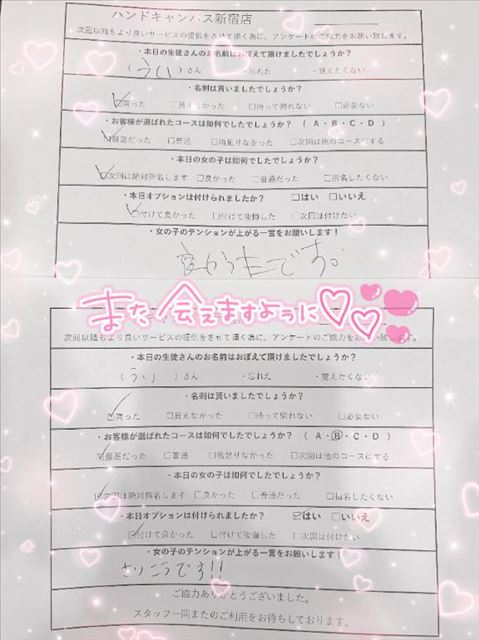 ハンドキャンパス新宿店
次回以降もより良いサービスの提供をさせて頂く為に、アンケートのご協力をお願い致します。
・本日の生徒さんのお名前はおぼえて頂けましたでしょうか?
(うい)さん ・忘れた ・覚えたくない
・名刺は貰いましたでしょうか?
☑貰った □貰えなかった □持って帰れない □必要ない
・お客様が選ばれたコースは如何でしたでしょうか? (A・B・C・D)
☑最高だった □普通 □物足りなかった □次回は他のコースにする
・本日の女の子は如何でしたでしょうか?
☑次回は絶対指名します □良かった □普通だった □指名したくない
・本日オプションは付けられましたか? □はい □いいえ
☑付けて良かった □付けて後悔した □次回は付けたい
・女の子のテンションが上がる一言をお願いします!
良かったです。
また会えますように♡♡
次回以降もより良いサービスの提供をさせて頂く為に、アンケートのご協力をお願い致します。
・本日の生徒さんのお名前はおぼえて頂けましたでしょうか?
(うい)さん ・忘れた ・覚えたくない
・名刺は貰いましたでしょうか?
☑貰った □貰えなかった □持って帰れない □必要ない
・お客様が選ばれたコースは如何でしたでしょうか? (A・Ⓑ・C・D)
☑最高だった □普通 □物足りなかった □次回は他のコースにする
・本日の女の子は如何でしたでしょうか?
☑次回は絶対指名します □良かった □普通だった □指名したくない
・本日オプションは付けられましたか? ☑はい □いいえ
☑付けて良かった □付けて後悔した □次回は付けたい
・女の子のテンションが上がる一言をお願いします!
さいこうです!!
ご協力ありがとうございました。
スタッフ一同またのご利用をお待ちしております。